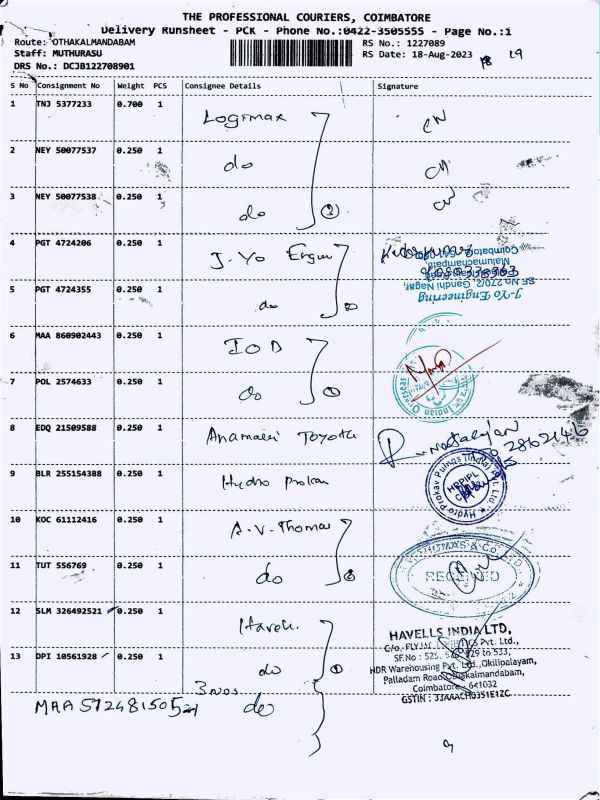 THE PROFESSIONAL COURIERS, COIMBATORE
Delivery Runsheet - PCK - Phone No.:0422-3505555 - Page No.:1
Route: OTHAKALMANDABAM RS No.: 1227089
Staff: MUTHURASU RS Date: 18-Aug-2023
DRS No.: DCJB122708901
S No Consignment No Weight PCS Consignee Details Signature
1 TNJ 5377233 0.700 1 Logimax
2 NEY 50077537 0.250 1 do
3 NEY 50077538 0.250 1 do
4 PGT 4724206 0.250 1 J-Yo
5 PGT 4724355 0.250 1 do
J-Yo Engineering
SF.No.270/2, Gandhi Nagar,
Malumachampatti
Coimbatore
6 MAA 860902443 0.250 1 IOD
7 POL 2574633 0.250 1 do
8 EDQ 21509588 0.250 1 Anamalai Toyota
9 BLR 255154388 0.250 1 Hydro
Hydro Prokav Pumps (India) Pvt. Ltd.
HPPIPL
10 KOC 61112416 0.250 1 A.V. Thomas
11 TUT 556769 0.250 1 do
THOMAS & Co.
RECEIVED
12 SLM 326492521 0.250 1
13 DPI 10561928 0.250 1 do
HAVELLS INDIA LTD,
Pvt. Ltd.,
SF.No : 529 to 533,
NDR Warehousing Pvt. Ltd., Okilipalayam,
Palladam Road, Othakalmandabam,
Coimbatore - 641032
GSTIN : 33AAACH0351E1ZC
3 nos
do